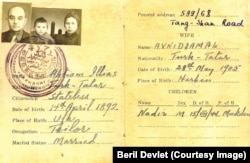 Nationality Turk-Tatar
Citizenship Stateless
Date of Birth 14th April 1892.
Place of Birth Ufa
Occupation Tailor
Marital Status Married.
Present address: 599/68
Tang-Shan Road
WIFE
Name AVNIDJAMAL
Nationality Turk-Tatar
Date of Birth 28th May 1905
Place of Birth
CHILDREN
Name Sex D. of B. P. of B.
Nadir M
Beril Devlet (Courtesy Image)